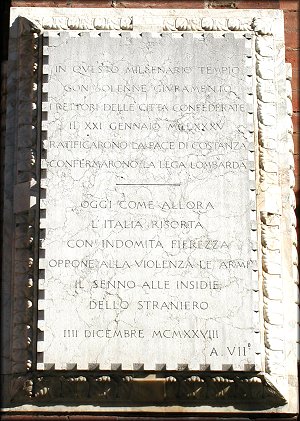 IN QVESTO MILLENARIO TEMPIO
CON SOLENNE GIVRAMENTO
I RETTORI DELLE CITTÀ CONFEDERATE
IL XXI GENNAIO MCLXXXV
RATIFICARONO LA PACE DI COSTANZA
CONFERMARONO LA LEGA LOMBARDA
OGGI COME ALLORA
L'ITALIA RISORTA
CON INDOMITA FIEREZZA
OPPONE ALLA VIOLENZA LE ARMI
IL SENNO ALLE INSIDIE
DELLO STRANIERO
IIII DICEMBRE MCMXXVIII
A. VII°